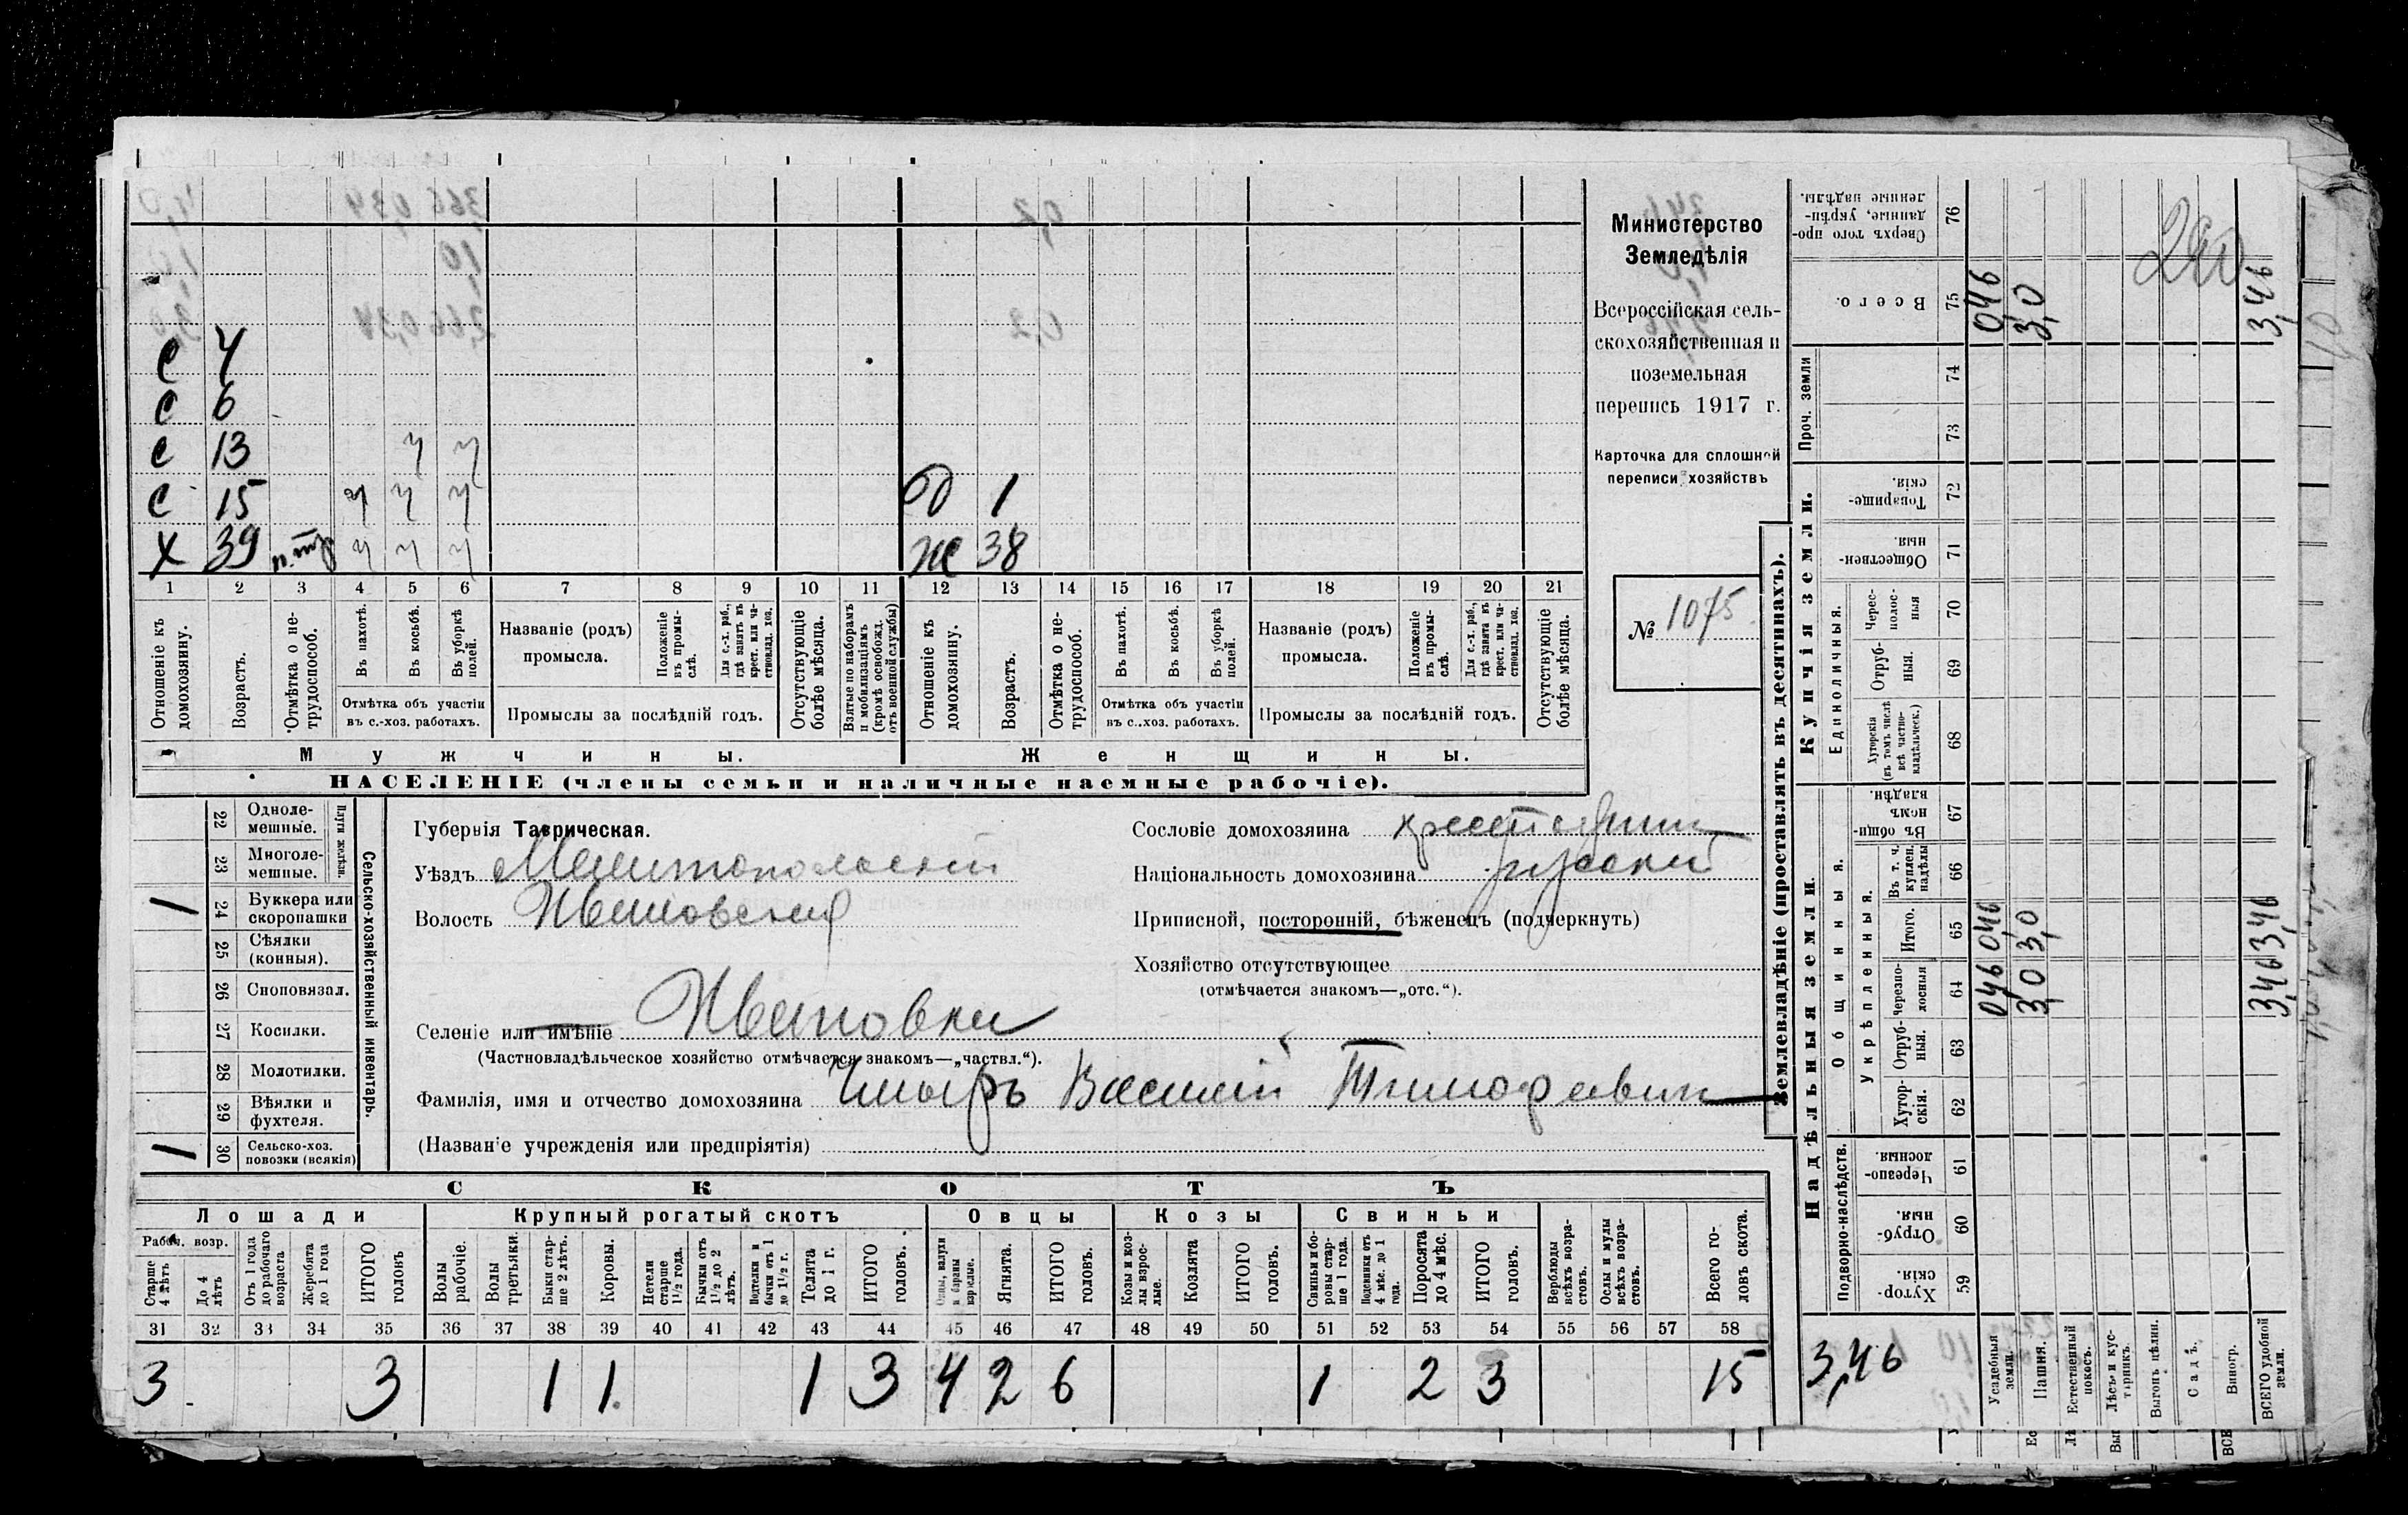 С 4
С 6
С 13 ч ч
С 15 ч ч ч
Д 1
Х 39 ч ч ч
Ж 38
1 2 3 4 5 6 7 8 9 10 11 12 13 14 15 16 17 18 19 20 21
Отношеніе къ домохозяину.
Возрастъ.
Отмѣтка о нетрудоспособ.
Въ пахотѣ.
Въ косьбѣ.
Въ уборкѣ полей.
Отмѣтка объ участіи
въ с.-хоз. работахъ.
Названіе (родъ)
промысла.
Положеніе въ промыслѣ.
Для с.-х. раб., гдѣ занятъ въ крест. или частновлад. хоз.
Промыслы за послѣдній годъ.
Отсутствующіе болѣе мѣсяца.
Взятые по наборамъ и мобилизаціямъ (кромѣ освобожд. отъ военной службы)
Отношеніе къ домохозяину.
Возрастъ.
Отмѣтка о нетрудоспособ.
Въ пахотѣ.
Въ косьбѣ.
Въ уборкѣ полей.
Отмѣтка объ участіи
въ с.-хоз. работахъ.
Названіе (родъ)
промысла.
Положеніе въ промыслѣ.
Для с.-х. раб., гдѣ занята въ крест. или частновлад. хоз.
Промыслы за послѣдній годъ.
Отсутствующіе болѣе мѣсяца.
Мужчины.
Женщины.
НАСЕЛЕНІЕ (члены семьи и наличные наемные рабочіе).
Министерство
Земледѣлія
Всероссійская сель-
скохозяйственная и
поземельная
перепись 1917 г.
Карточка для сплошной
переписи хозяйствъ
№ 1075
Сельско-хозяйственный инвентарь.
Плуги желѣзн.
22 Одноле-
мешные.
23 Многоле-
мешные.
1 24 Буккера или
скоропашки
25 Сѣялки
(конныя).
26 Сноповязал.
27 Косилки.
28 Молотилки.
29 Вѣялки и
фухтеля.
1 30 Сельско-хоз.
повозки (всякія)
Губернія Таврическая.
Уѣздъ Мелитопольскій
Волость Ивановская
Селеніе или имѣніе Ивановка
(Частновладѣльческое хозяйство отмѣчается знакомъ—„частвл.“).
Фамилія, имя и отчество домохозяина Чмырь Василій Тимофевич
(Названіе учрежденія или предпріятія)
Сословіе домохозяина крестьянин
Національность домохозяина русский
Приписной, посторонній, бѣженецъ (подчеркнуть)
Хозяйство отсутствующее
(отмѣчается знакомъ—„отс.“).
СКОТЪ
Лошади Крупный рогатый скотъ Овцы Козы Свиньи
Рабоч. возр.
Старше 4 лѣтъ
До 4 лѣтъ
Отъ 1 года до рабочаго возраста
Жеребята до 1 года
ИТОГО головъ
Волы рабочіе.
Волы третьяки.
Быки старше 2 лѣтъ.
Коровы.
Нетели старше 1½ года.
Бычки отъ 1½ до 2 лѣтъ.
Подтелки и бычки отъ 1 до 1½ г.
Телята до 1 г.
ИТОГО головъ.
Овцы, валухи и бараны взрослые.
Ягнята.
ИТОГО головъ.
Козы и козлы взрослые.
Козлята
ИТОГО головъ.
Свиньи и боровы старше 1 года.
Подсвинки отъ 4 мѣс. до 1 года.
Поросята до 4 мѣс.
ИТОГО головъ.
Верблюды всѣхъ возрастовъ.
Ослы и мулы всѣхъ возрастовъ.
Всего головъ скота.
31 32 33 34 35 36 37 38 39 40 41 42 43 44 45 46 47 48 49 50 51 52 53 54 55 56 57 58
3 3 1 1 1 3 4 2 6 1 2 3 15
Землевладѣніе (проставлять въ десятинахъ).
Надѣльныя земли.
Купчія земли.
Проч. земли
Подворно-наслѣдств.
Общинныя.
Укрѣпленныя.
Единоличныя.
59 Хуторскія.
60 Отрубныя.
61 Черезполосныя.
62 Хуторскія.
63 Отрубныя.
64 Черезполосныя
65 Итого.
66 Въ т. ч. куплен. надѣлы
67 Въ общинномъ владѣн.
68 Хуторскія (въ томъ числѣ всѣ частновладѣльческ.)
69 Отрубныя.
70 Черезполосныя
71 Общественныя.
72 Товарищескія.
73
74
75 Всего.
76 Сверхъ того проданные, укрѣпленные надѣлы.
3,46
Усадебныя земли. 046 046 046
Пашня. 3,0 3,0 3,0
Естественный покосъ.
Лѣсъ и кустарникъ.
Выгонъ цѣлин.
Садъ.
Виногр.
ВСЕГО удобной земли. 3,46 3,46 3,46